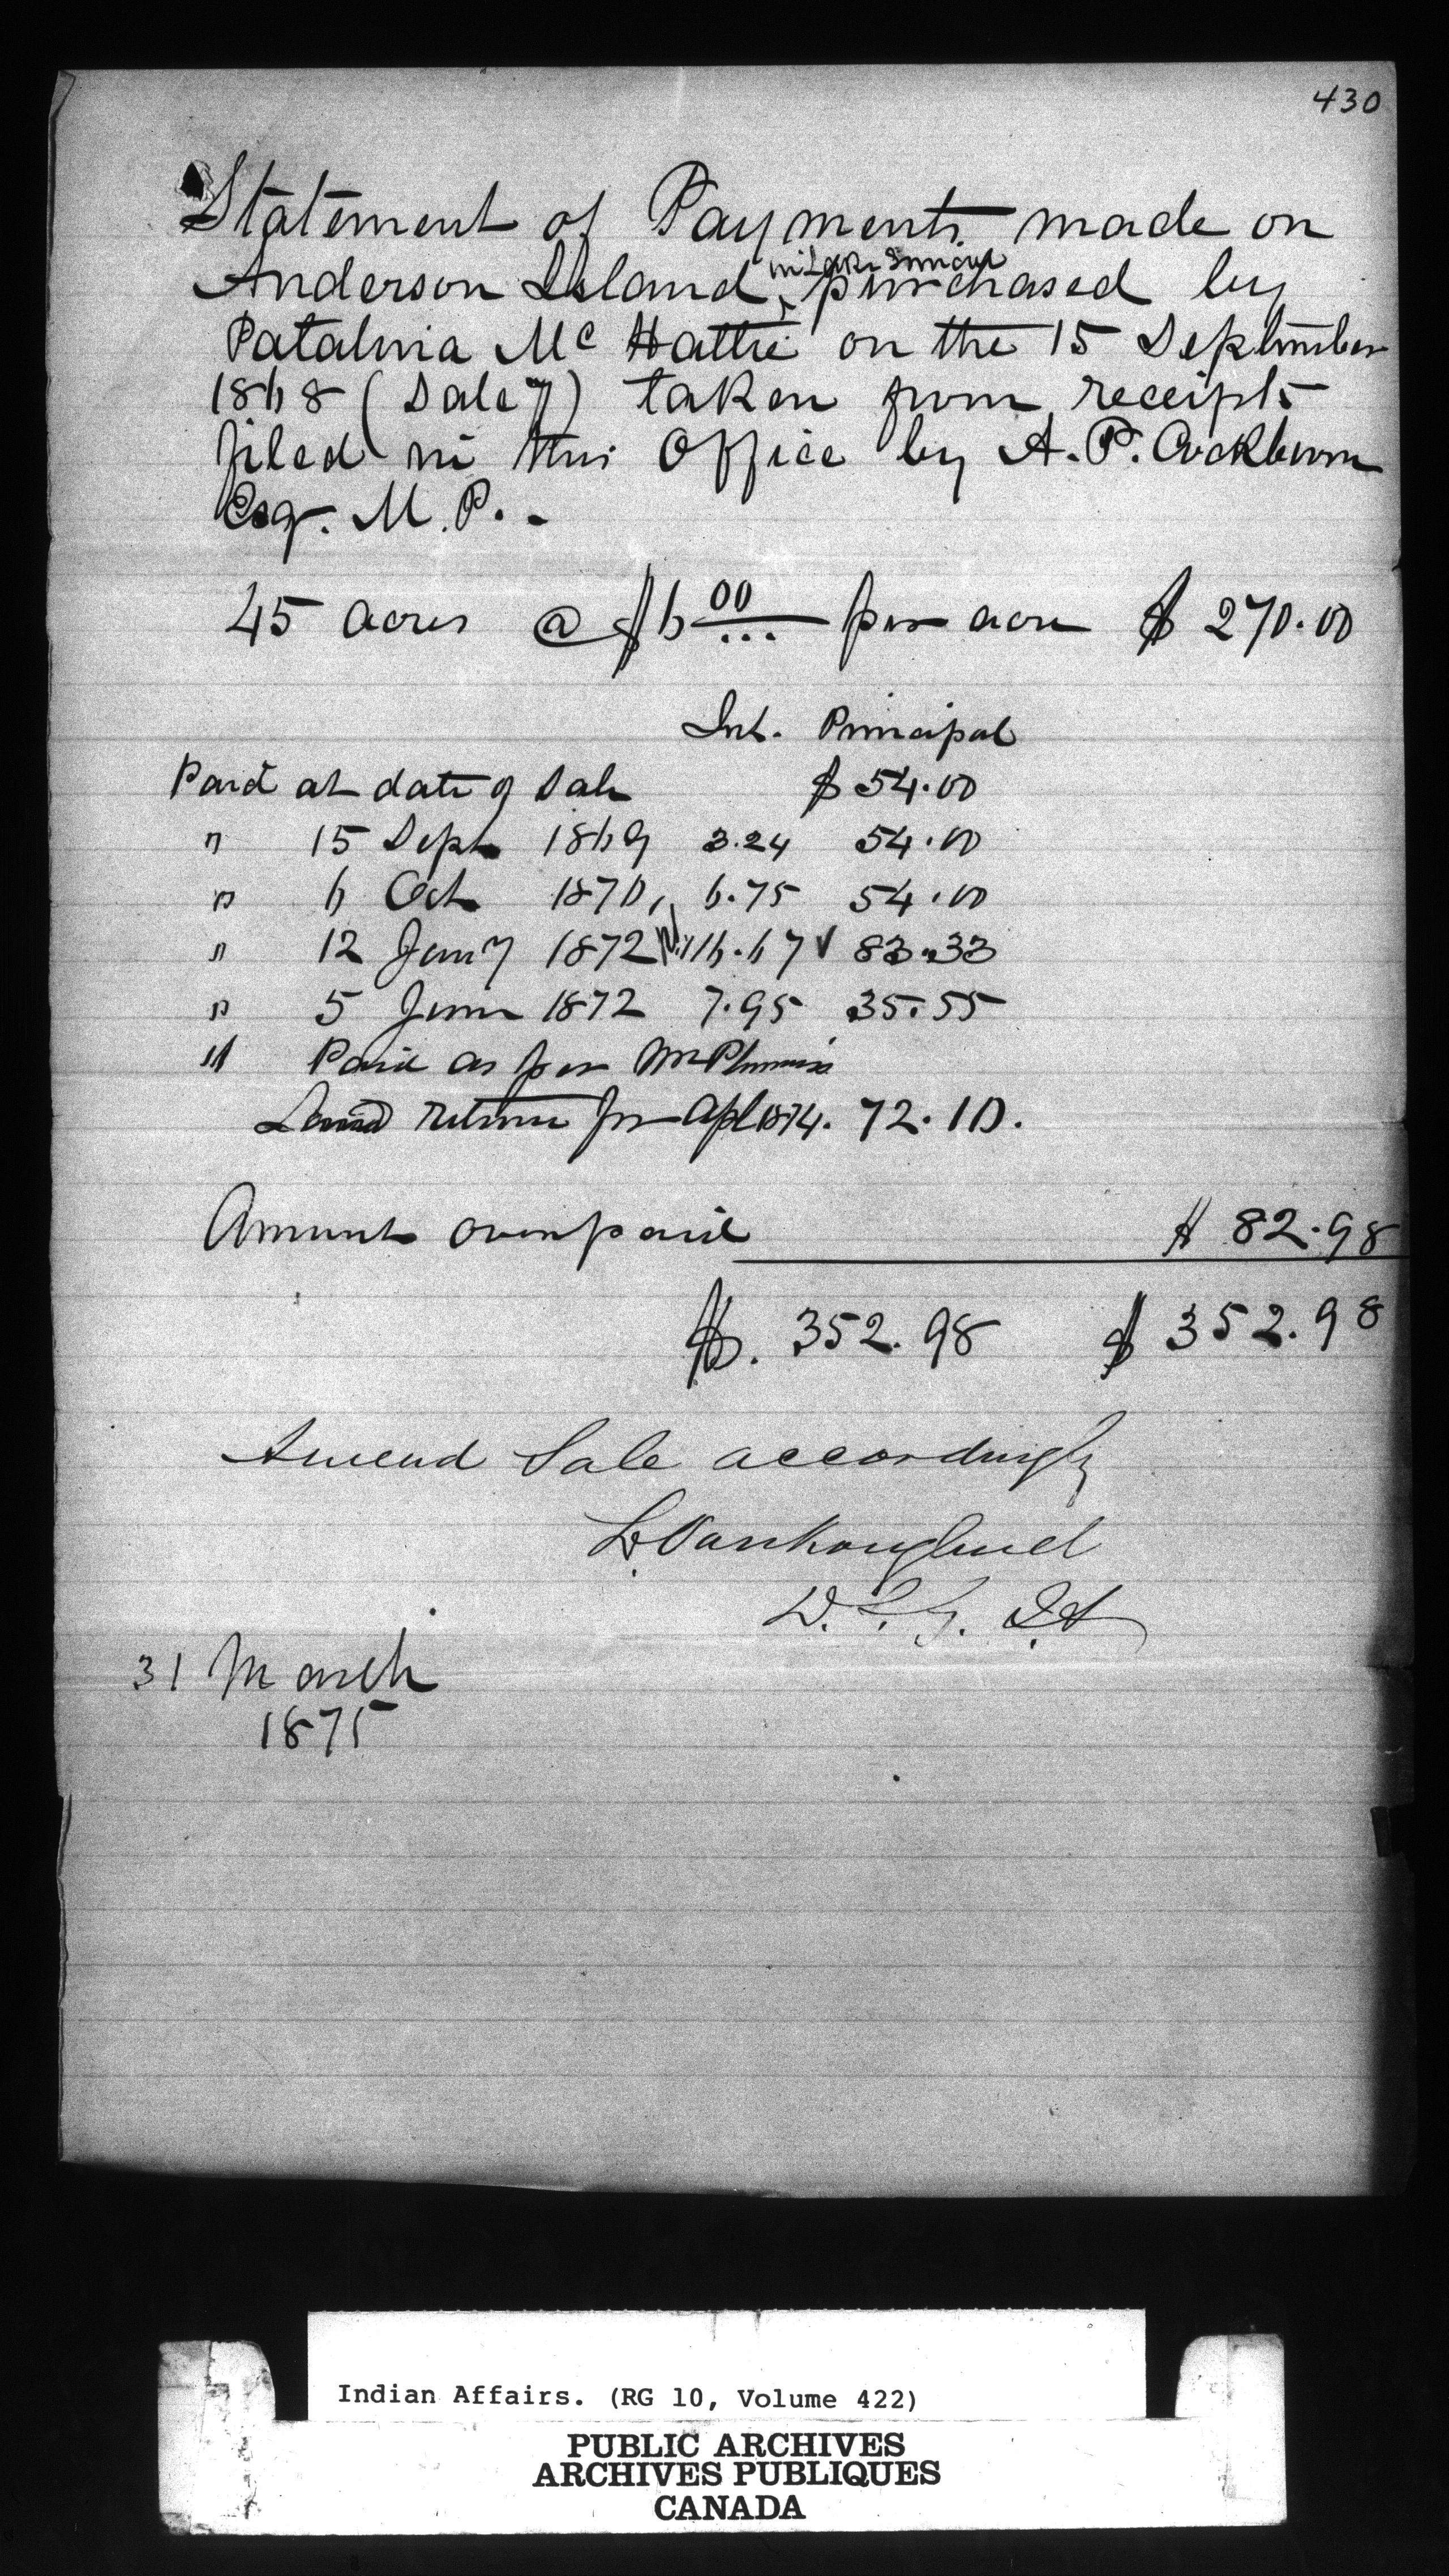 430
Statement of Payments made on
in Lake Simcoe
Anderson Island, purchased by
Patalina Mc Hattie on the 15 September
1868 (Sale 7) taken from receipts
filed in this Office by A. P. Cockburn
Esq. M. P. -
45 acres @ $6 00 per acre $ 270.00
Int. Principal
Paid at date of Sale $ 54.00
" 15 Sept 1869 3.24 54.00
" 6 Oct 1870, 6.75 54.00
" 12 Jany 1872 16.67 √ 83.33
" 5 June 1872 7.95 35.55
" Paid as per Mr Plummer's
Land return for Apl 1874. 72.10.
Amount overpaid $ 82.98
$. 352.98 $ 352.98
Amend Sale accordingly
L. Vankoughnet
D. S. G. I. A
31 March
1875
Indian Affairs. (RG 10, Volume 422)
PUBLIC ARCHIVES
ARCHIVES PUBLIQUES
CANADA